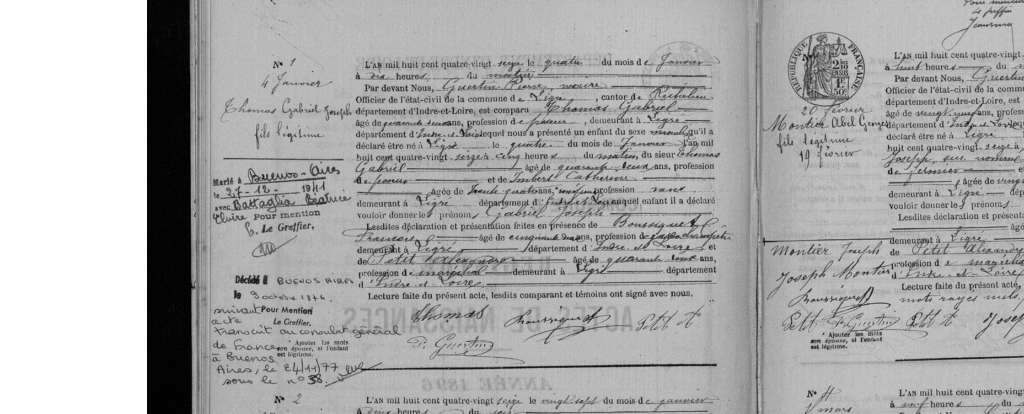 N° 1
4 Janvier
Thomas Gabriel Joseph
fils légitime
Marié à Buenos-Aires
le 27-12-1941
avec Battaglia Béatrice
Claire Pour mention
Le Greffier,
Décidé à BUENOS AIRES
le 9 octobre 1976.
suivant Pour Mention
acte Le Greffier,
transcrit au consulat général
de France
à Buenos
Aires, le 24/11/77
sous le n° 38.
* Ajouter les mots
son épouse, si l'enfant
est légitime.
L'AN mil huit cent quatre-vingt seize le quatre du mois de Janvier
à dix heures du matin
Par devant Nous, Guertin Pierre, maire
Officier de l'état-civil de la commune de Ligré, canton de Richelieu
département d'Indre-et-Loire, est comparu Thomas Gabriel
âgé de quarante deux ans, profession de , demeurant à Ligré
département d'Indre et Loire lequel nous a présenté un enfant du sexe masculin qu'il a
déclaré être né à Ligré le quatre du mois de Janvier L'AN mil
huit cent quatre-vingt seize à cinq heures du matin, du sieur Thomas
Gabriel âgé de quarante deux ans, profession
de et de Imbert Catherine
âgée de trente quatre ans, profession sans
demeurant à Ligré département d'Indre et Loire auquel enfant il a déclaré
vouloir donner les prénoms Gabriel Joseph
Lesdites déclaration et présentation faites en présence de Boussiquet
François âgé de cinquante ans, profession de garde champêtre
demeurant à Ligré département d'Indre et Loire et
de Petit Alexandre âgé de quarante deux ans,
profession de maréchal demeurant à Ligré département
d'Indre et Loire.
Lecture faite du présent acte, lesdits comparant et témoins ont signé avec nous.
Thomas Boussiquet Petit A
P. Guertin
N° 2
L'AN mil huit cent quatre-vingt seize le vingt sept du mois de janvier
à deux heures du soir
RÉPUBLIQUE FRANÇAISE
20 février
Montier Abel Georges
fils légitime
19 février
L'AN mil huit cent quatre-vingt
à huit heures
Par devant Nous, Guertin
Officier de l'état-civil de la commune
département d'Indre-et-Loire, est
âgé de vingt neuf ans, profession
département d'Indre et Loire
déclaré être né à Ligré
huit cent quatre-vingt seize à
Joseph, sus nommé
de fermier
âgée de vingt
demeurant à Ligré
vouloir donner les prénoms
Lesdites déclaration et présentation
demeurant à Ligré
de Petit Alexandre
profession de maréchal
d'Indre-et-Loire
Lecture faite du présent acte,
mots rayés nuls.
Montier Joseph
Joseph Montier
Boussiquet
Petit P. Guertin Petit A Joseph
* Ajouter les mots
son épouse, si l'enfant
est légitime.
N° 4
1 mars
L'AN mil huit cent quatre-vingt
à neuf heures
Par devant Nous,